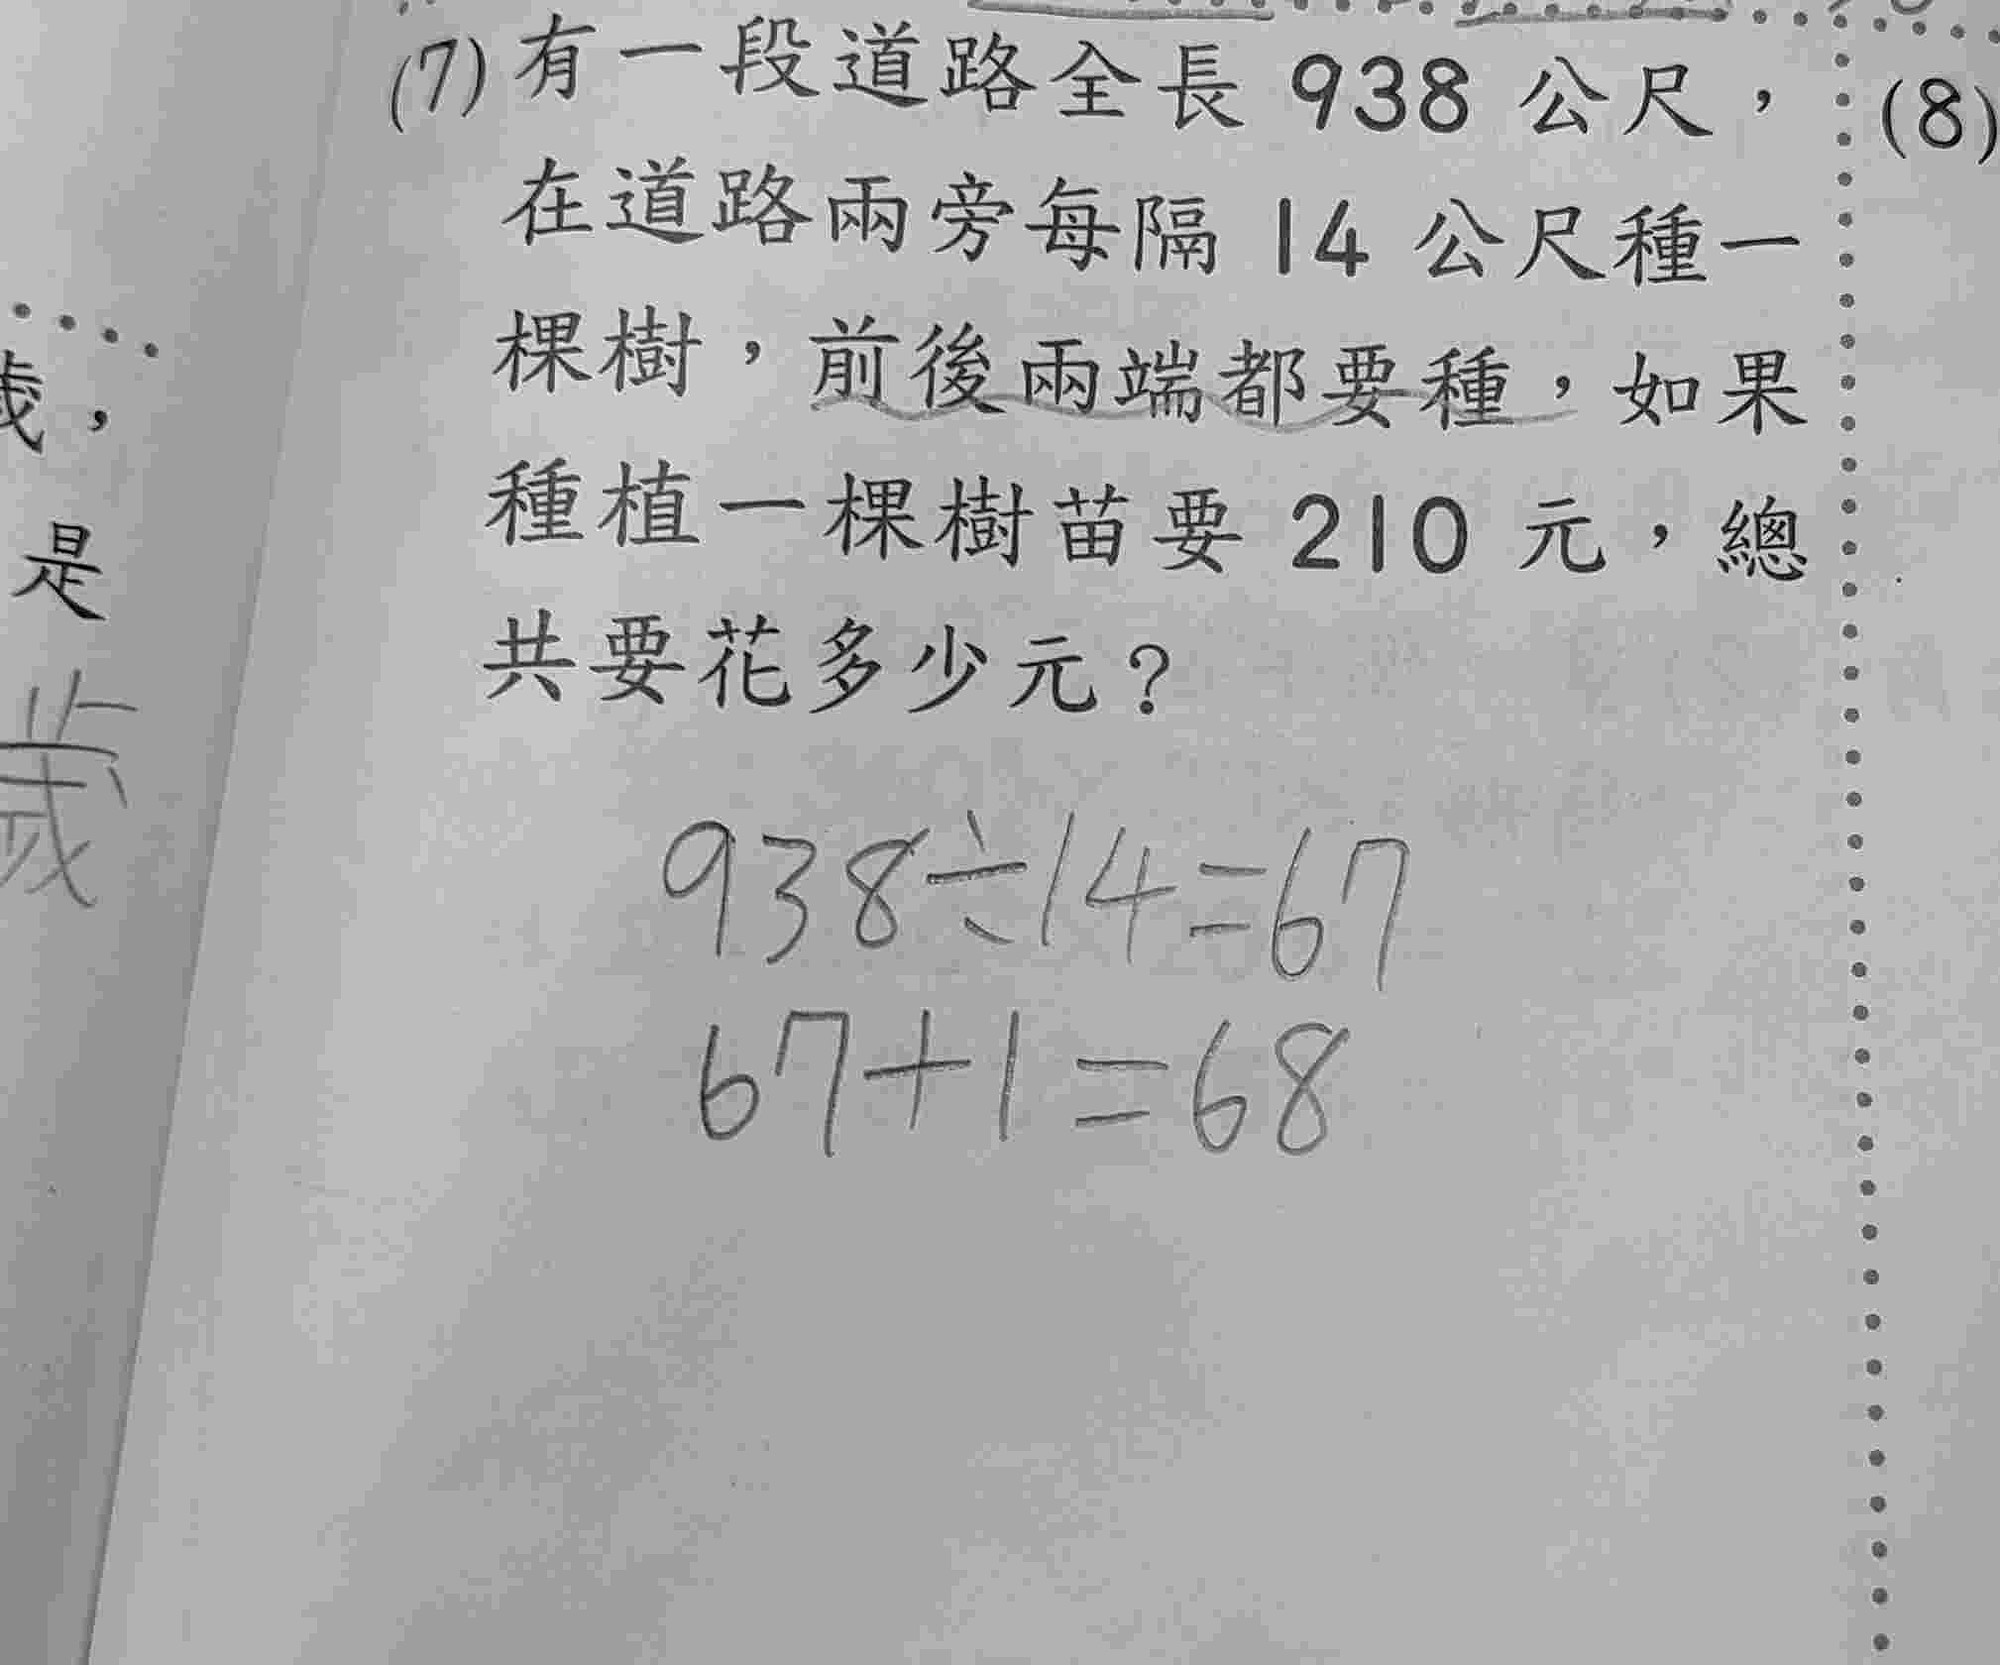 (7) 有一段道路全長 938 公尺，
在道路兩旁每隔 14 公尺種一
棵樹，前後兩端都要種，如果
種植一棵樹苗要 210 元，總
共要花多少元？
938÷14=67
67+1=68
(8)
歲，
是
歲